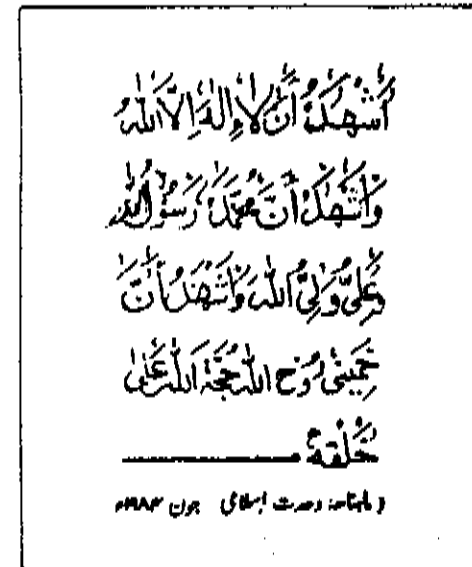 أَشْهَدُ أَنْ لَا إِلٰهَ إِلَّا اللهُ
وَأَشْهَدُ أَنَّ مُحَمَّدًا رَسُولُ اللهِ
وَعَلِيٌّ وَلِيُّ اللهِ وَأَشْهَدُ أَنَّ
خميني رُوحُ اللهِ حُجَّةُ اللهِ عَلَىٰ
خَلْقِهِ
( ماہنامہ وحدت اسلامی جون ۱۹۸۴ء